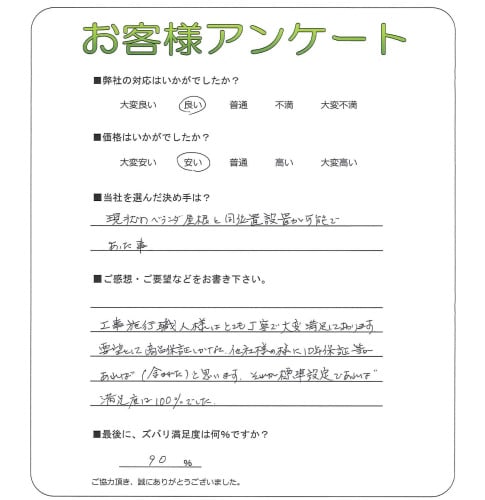 お客様アンケート
■弊社の対応はいかがでしたか？
大変良い 良い 普通 不満 大変不満
■価格はいかがでしたか？
大変安い 安い 普通 高い 大変高い
■当社を選んだ決め手は？
現状のベランダ屋根と同位置設置が可能で
あった事
■ご感想・ご要望などをお書き下さい。
工事施行職人様はとても丁寧で大変満足しております
要望として商品保証しかなく、他社様の様に10年保証等が
あれば(含めた)と思います。それが標準設定であれば
満足度は100%でした。
■最後に、ズバリ満足度は何％ですか？
90 ％
ご協力頂き、誠にありがとうございました。